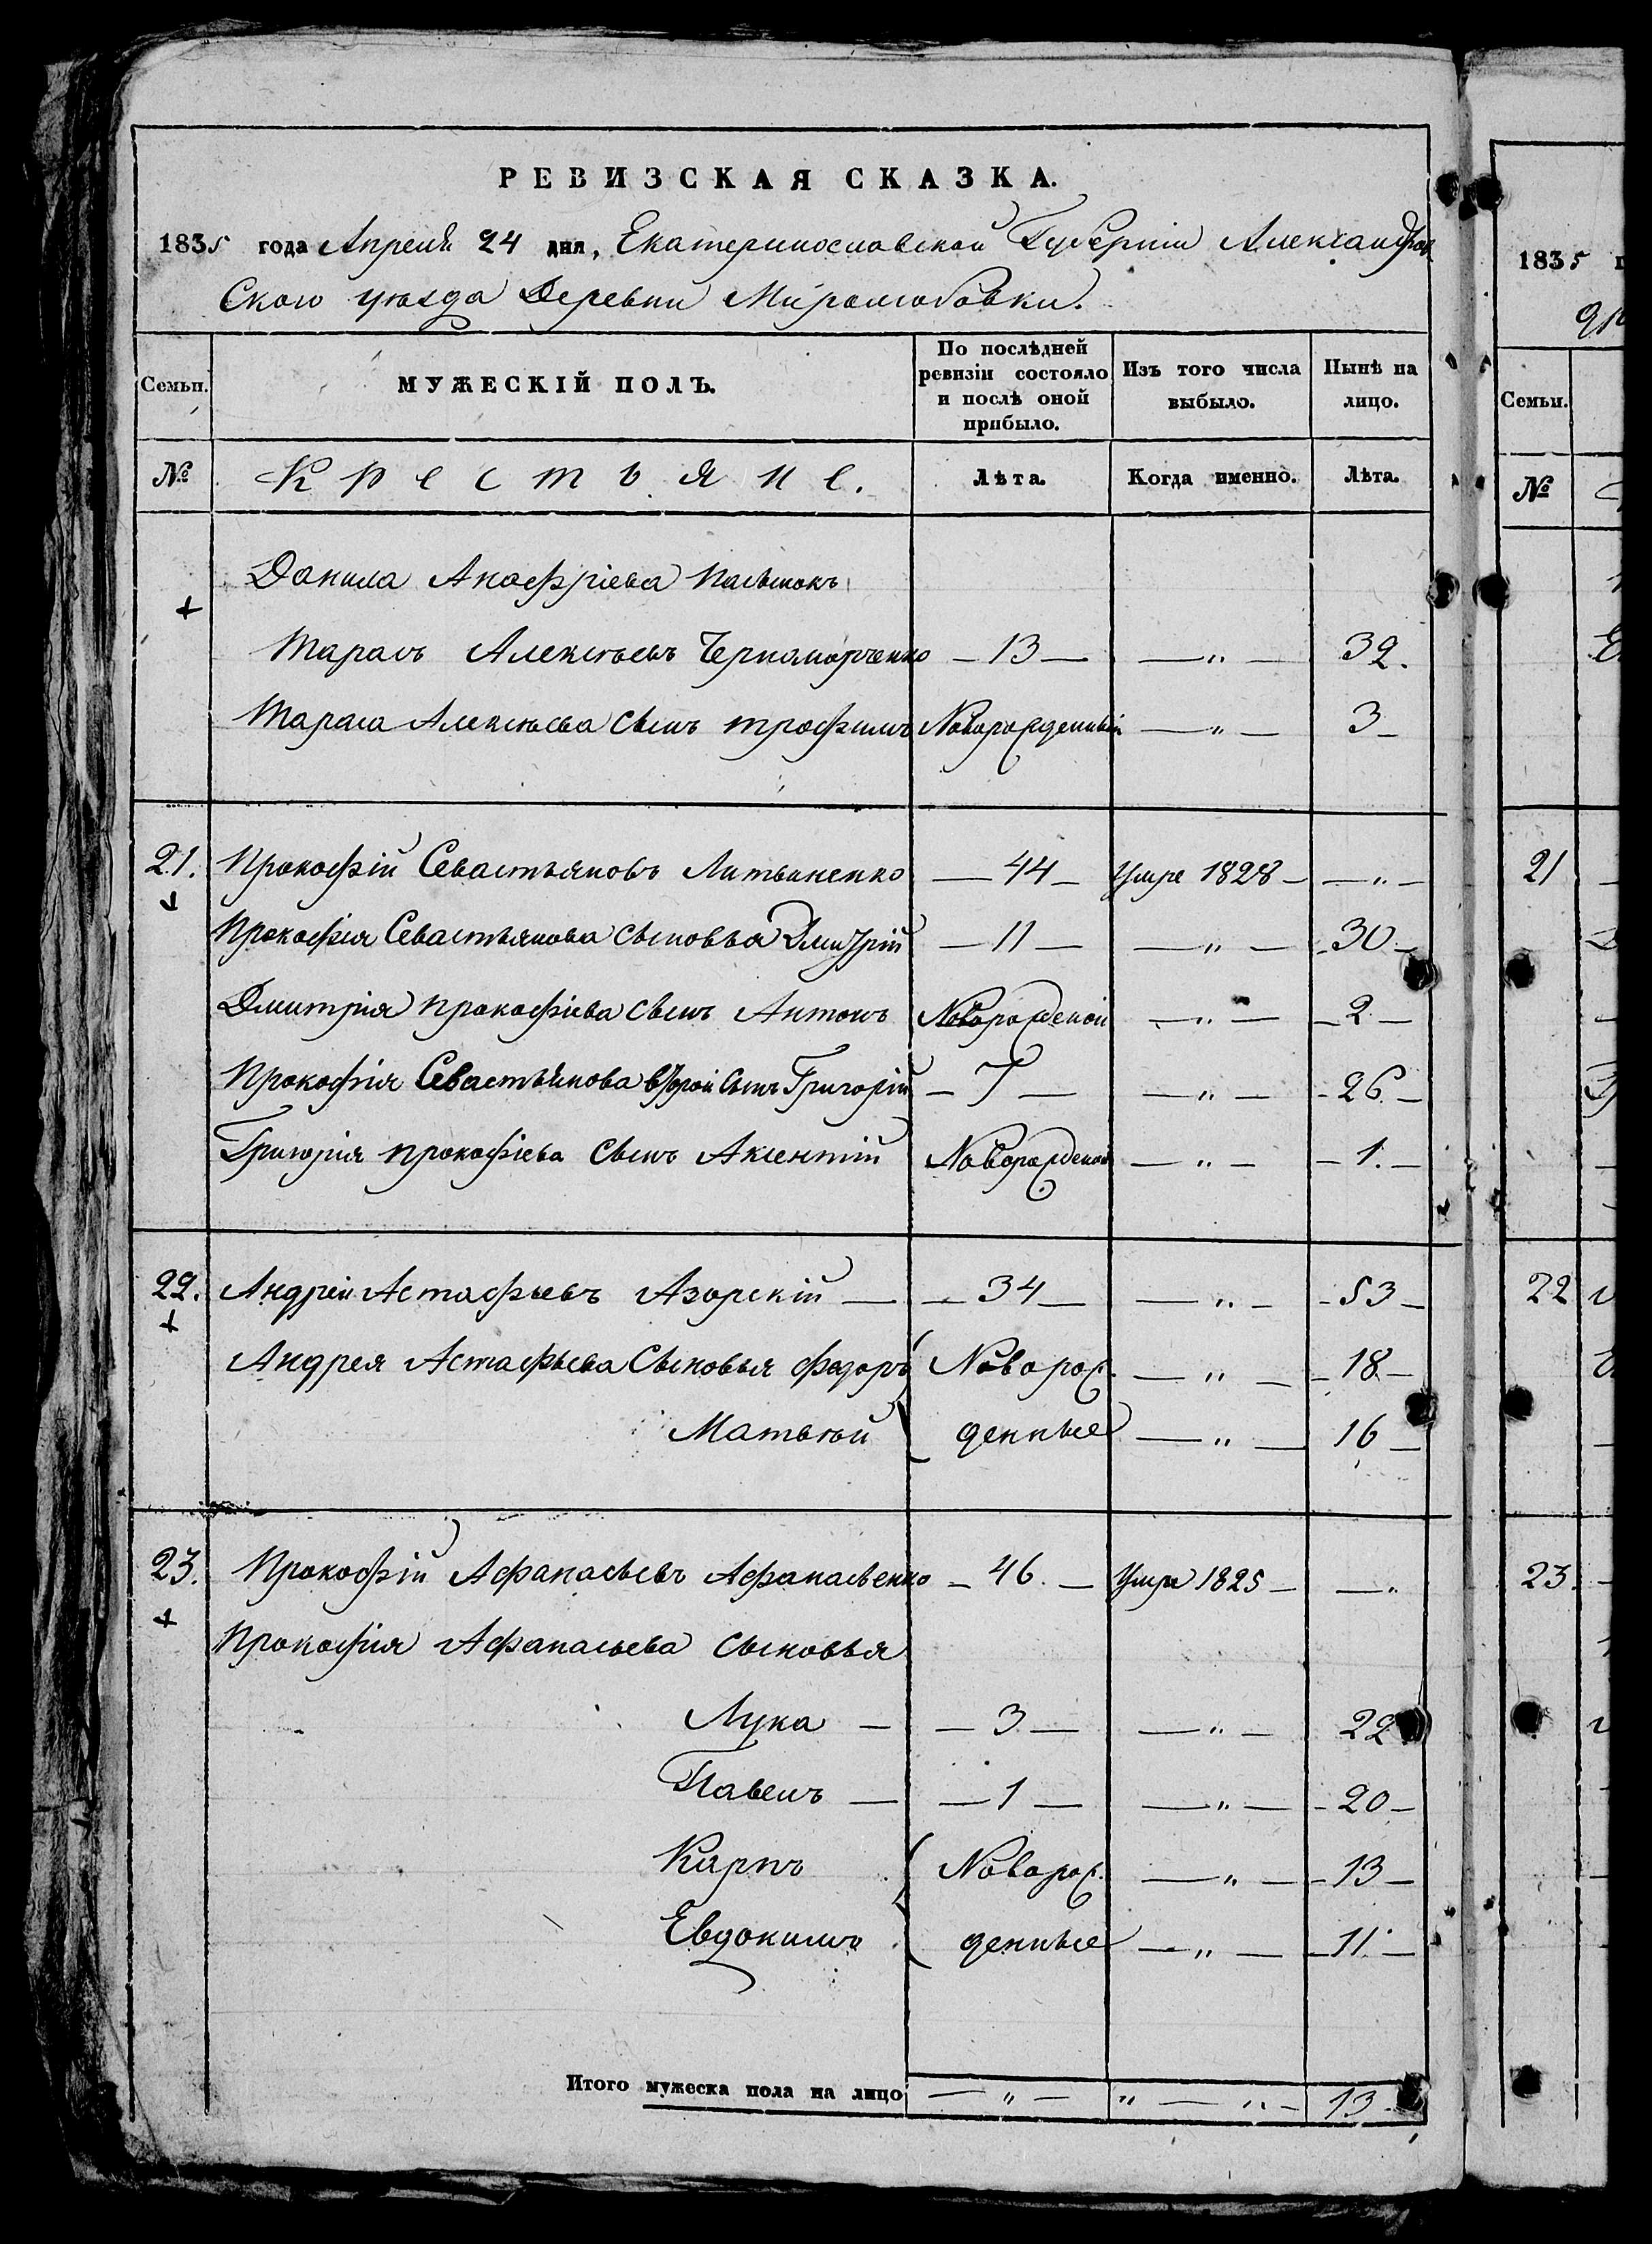 РЕВИЗСКАЯ СКАЗКА.
1835 года Апреля 24 дня, Екатеринославской Губерніи Александров
Ского уѣзда Деревни Миролюбовки.
Семьи. МУЖЕСКІЙ ПОЛЪ. По послѣдней ревизіи состояло и послѣ оной прибыло. Изъ того числа выбыло. Нынѣ на лицо.
№ Крестьяне. Лѣта. Когда именно. Лѣта.
Данила Анофріева
Тарасъ Алексѣевъ Черноморченко — 13 — — „ — 32.
Тараса Алексѣева сынъ трофимъ Новорожденный — „ — 3 —
21. Прокофій Севастьяновъ Литвиненко — 44 — Умре 1828 — — „ —
Прокофія Севастьянова сыновья Дмитрій — 11 — — „ — — 30 —
Дмитрія прокофіева сынъ Антонъ Новорожденой — „ — — 2 —
Прокофія Севастьянова второй сынъ Григорій — 7 — — „ — — 26. —
Григорія прокофіева сынъ Аксентій Новорожденой — „ — — 1. —
22. Андрей Астафьевъ Азорскій — — 34 — — „ — — 53 —
Андрея Астафьева Сыновья федоръ Новорож. — „ — — 18 —
Матвѣй денные — „ — 16 —
23. Прокофій Афанасьевъ Афанасьенко — 46. — Умре 1825 — — „
Прокофія Афанасьева сыновья
Лука — — 3 — — „ — 22
Павелъ — — 1 — — „ — — 20 —
Карпъ Новорож. — „ — — 13 —
Евдокимъ денные — „ — — 11. —
Итого мужеска пола на лицо — „ — „ — „ — 13.
1835
Семьи.
№
21
22
23.